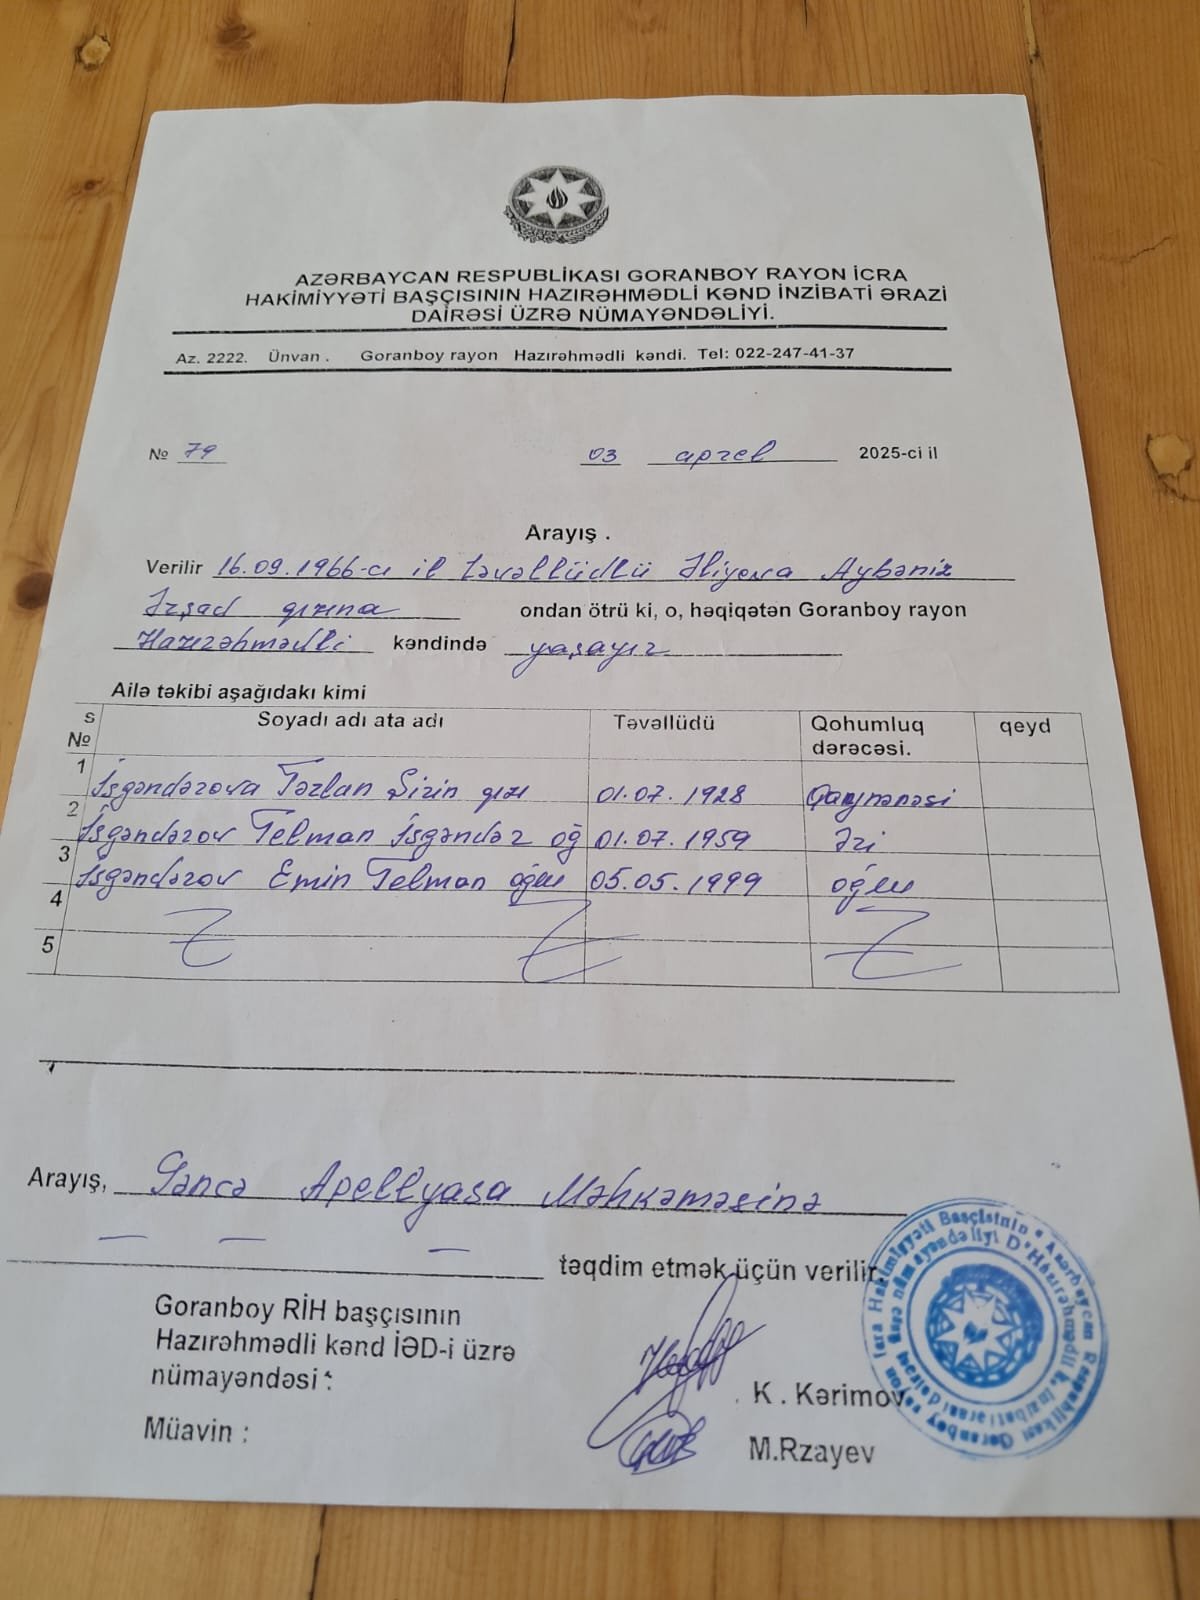 AZƏRBAYCAN RESPUBLİKASI GORANBOY RAYON İCRA
HAKİMİYYƏTİ BAŞÇISININ HAZIRƏHMƏDLİ KƏND İNZİBATİ ƏRAZİ
DAİRƏSİ ÜZRƏ NÜMAYƏNDƏLİYİ.
Az. 2222. Ünvan . Goranboy rayon Hazırəhmədli kəndi. Tel: 022-247-41-37
№ 79 03 aprel 2025-ci il
Arayış .
Verilir 16.09.1966-cı il təvəllüdlü Əliyeva Aybəniz
İrşad qızına ondan ötrü ki, o, həqiqətən Goranboy rayon
Hazırəhmədli kəndində yaşayır
Ailə təkibi aşağıdakı kimi
s № Soyadı adı ata adı Təvəllüdü Qohumluq dərəcəsi. qeyd
1 İsgəndərova Tərlan Şirin qızı 01.07.1928 Qaynənəsi
2 İsgəndərov Telman İsgəndər oğ 01.07.1959 Əri
3 İsgəndərov Emin Telman oğlu 05.05.1999 oğlu
4
5
Arayış, Gəncə Apellyasa Məhkəməsinə
təqdim etmək üçün verilir.
Goranboy RİH başçısının
Hazırəhmədli kənd İƏD-i üzrə
nümayəndəsi : K . Kərimov
Müavin : M.Rzayev